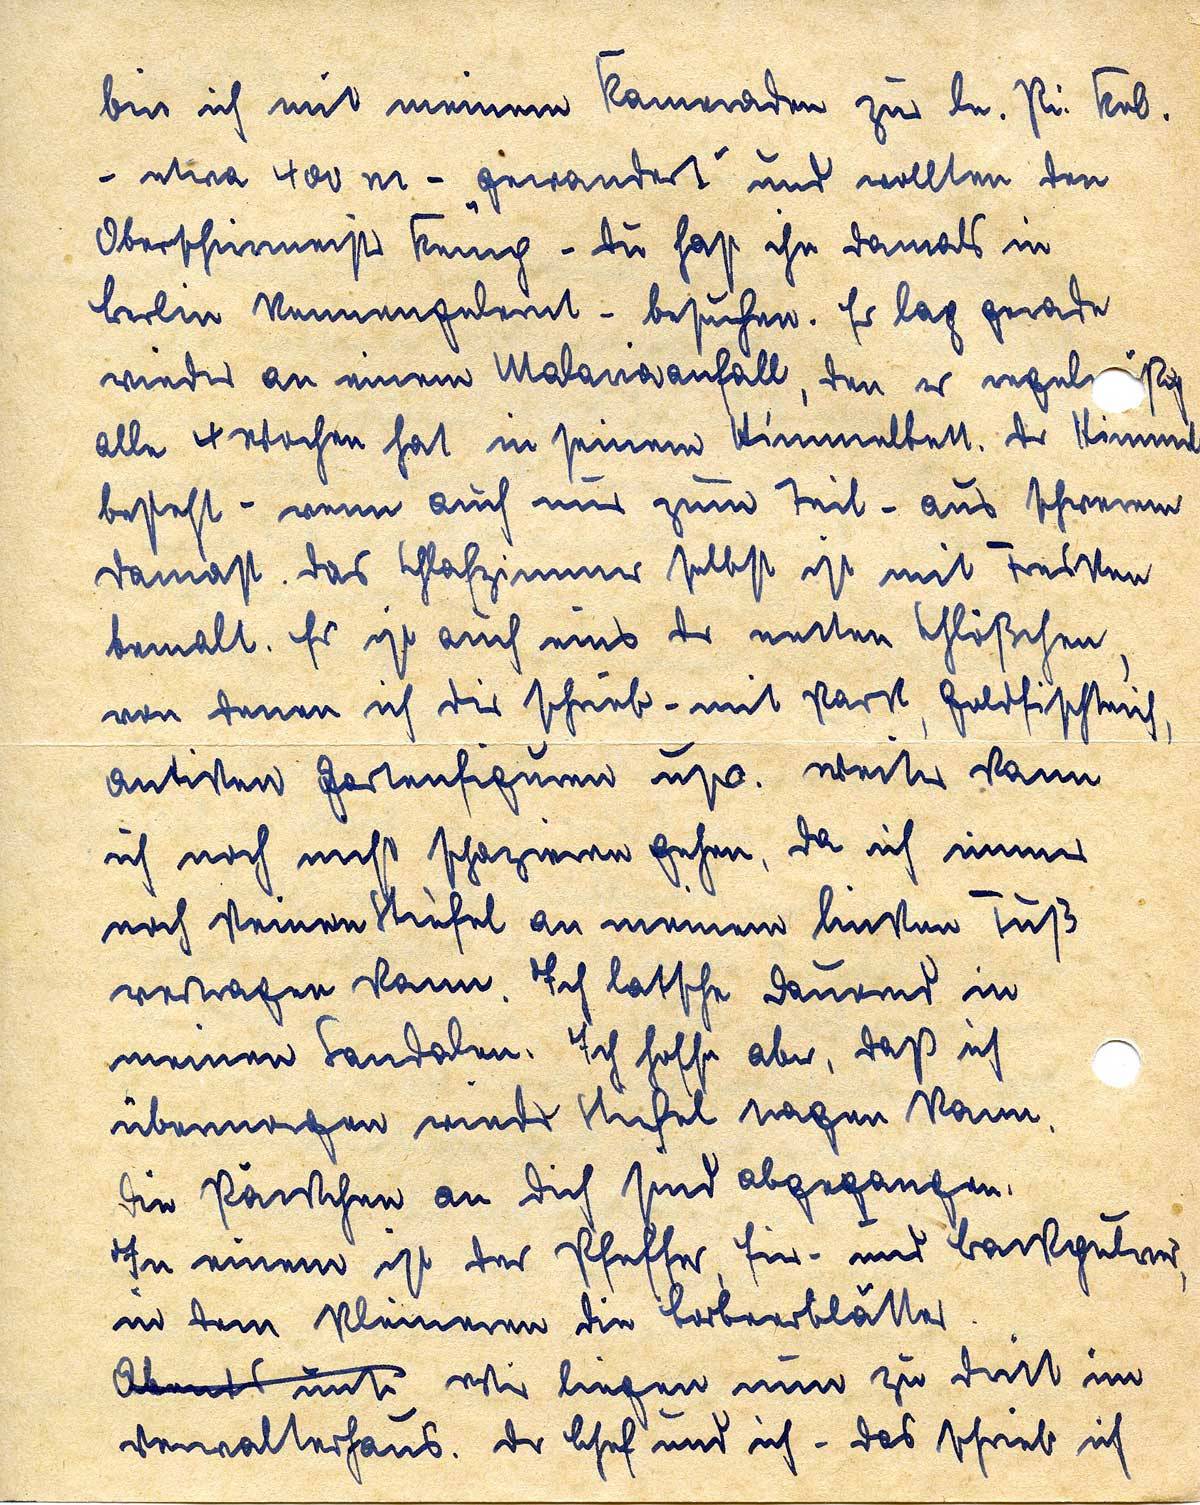 bin ich mit meinem Kameraden zur le. Pi. Kol.
- etwa 400 m - „gewandert“ und wollten den
Oberschirrmeister Kemp - Du hast ihn damals in
Berlin kennengelernt - besuchen. Er lag gerade
wieder an einem Malariaanfall, den er regelmäßig
alle 4 Wochen hat in seinem Himmelbett. Der Himmel
besteht - wenn auch nur zum Teil - aus schwerem
Damast. Das Schlafzimmer selbst ist mit Fresken
bemalt. Es ist auch eins der netten Schlößchen,
von denen ich Dir schrieb - mit Park, Goldfischteich,
antiken Gartenfiguren usw. Weiter kann
ich noch nicht spazieren gehen, da ich immer
noch keinen Stiefel an meinem linken Fuß
vertragen kann. Ich latsche dauernd in
meinen Sandalen. Ich hoffe aber, daß ich
übermorgen wieder Stiefel tragen kann.
Die Päckchen an Dich sind abgegangen.
In einem ist der Pfeffer, Eier- und Backpulver,
in dem kleineren die Lorbeerblätter.
Abends unt. Wir liegen nun zu dritt im
Verwalterhaus. Der Chef und ich - das schrieb ich